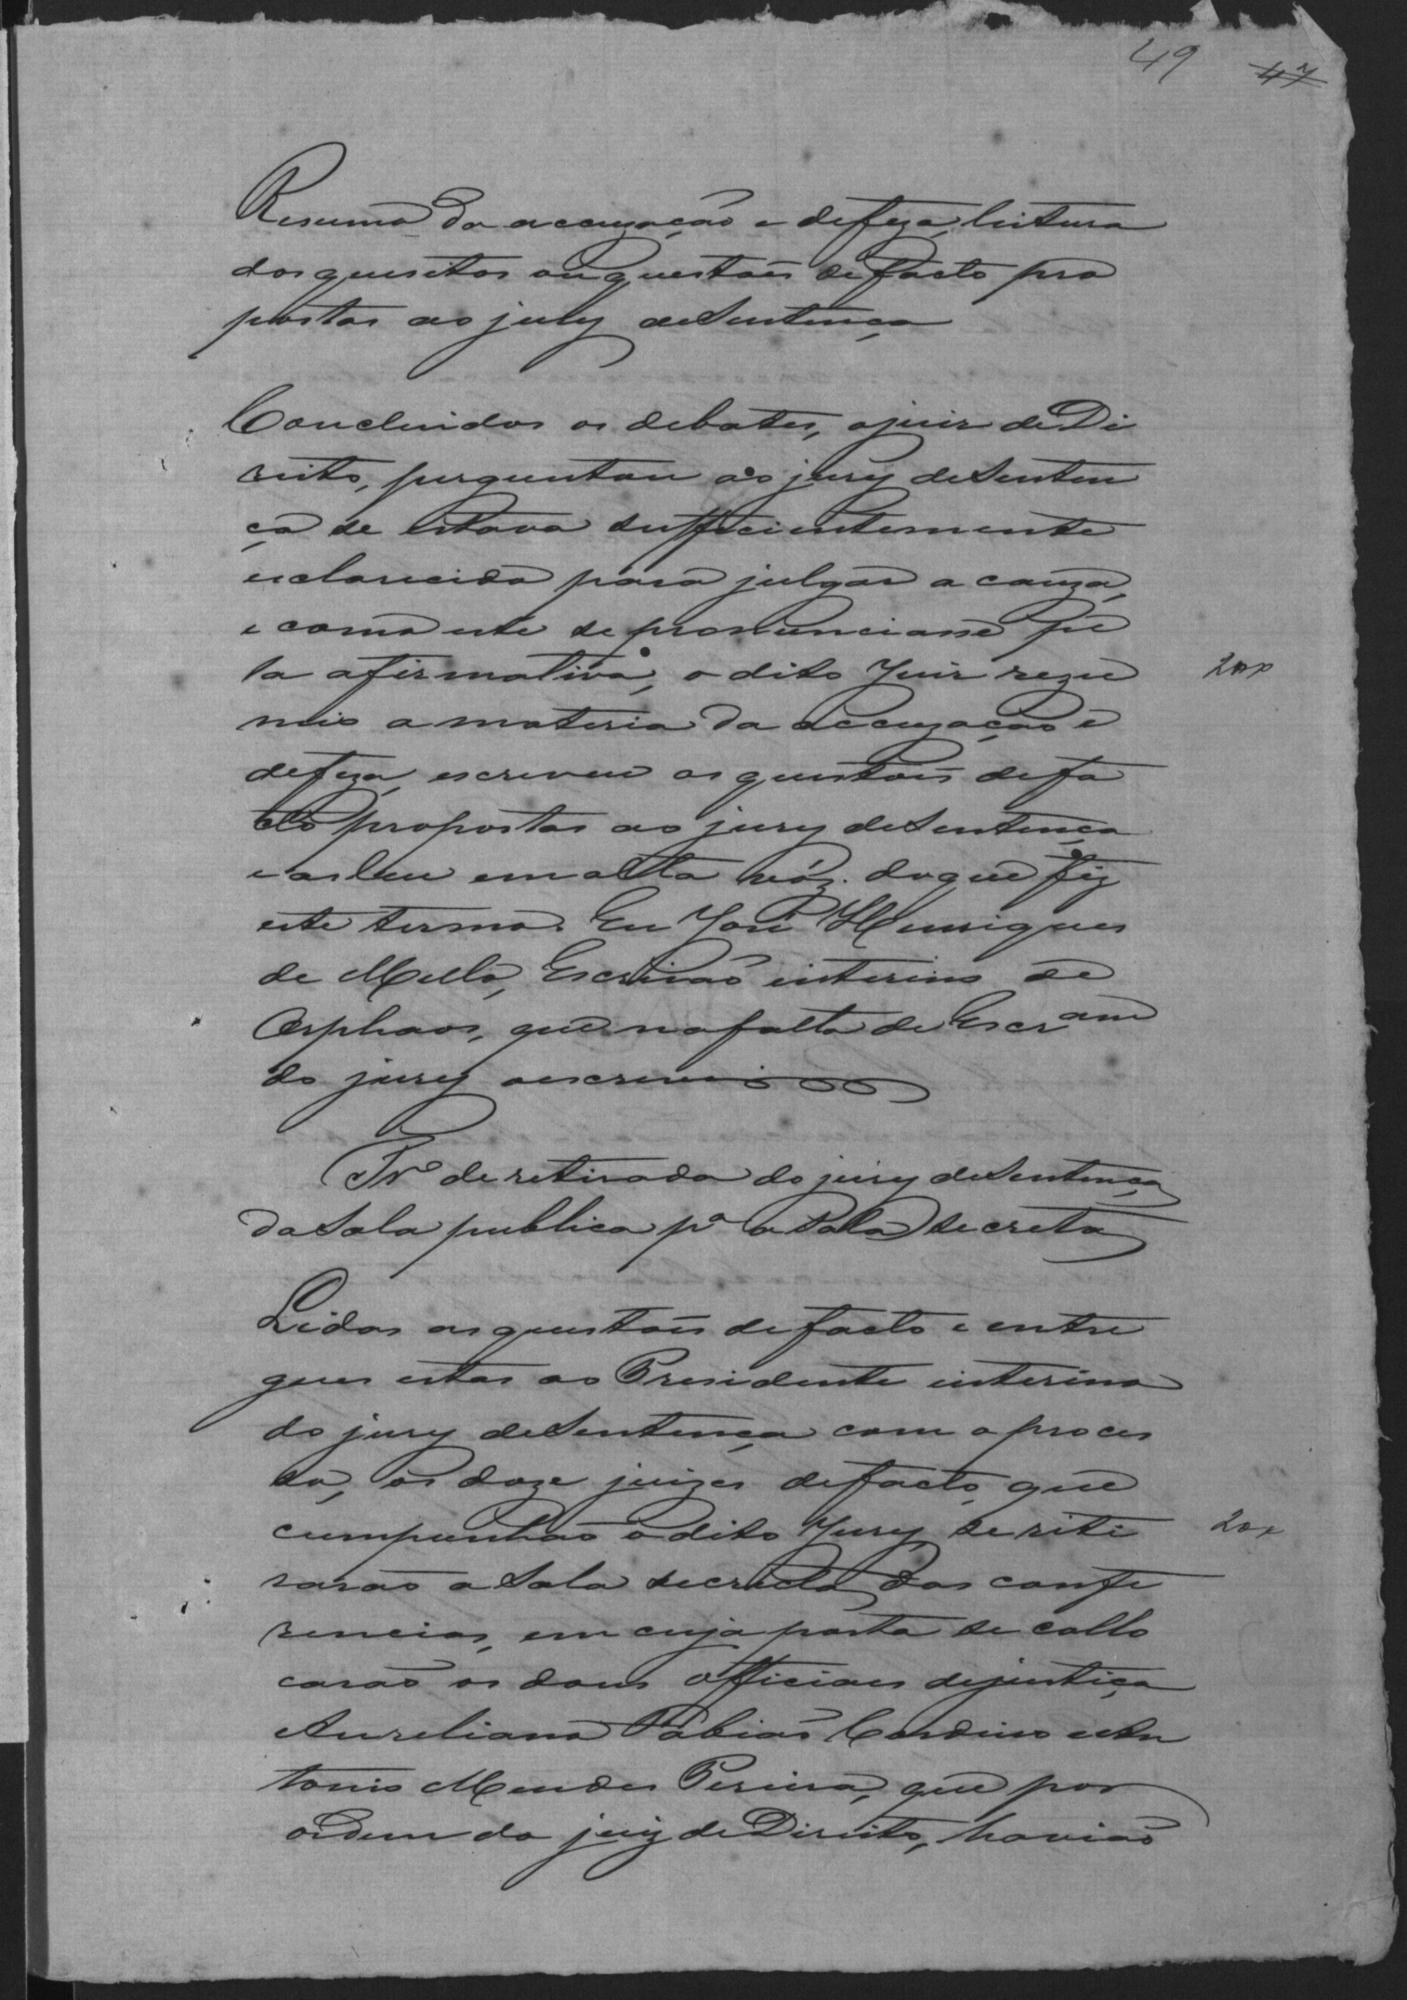 49 47
Resumo da accuzação e defeza, leitura
dos quesitos ou questoẽs de facto pro
postas ao jury de Sentença
Concluidos os debates, o juiz de Di
reito, perguntou ao jury de Senten
ça se estava sufficientemente
esclarecido para julgar a cauza,
e como este se pronunciasse pe
la afirmativa, o dito Juiz rezu
mio a materia da accuzação e
defeza, escreveu as questoẽs de fa
cto propostas ao jury de Sentença
e as leu em alta vóz. do que fiz
este termo. Eu José Henriques
de Mello, Escrivaõ interino de
Orphaos, que na falta de Escram
do jury o escrevi
Tr.º de retirada do jury de Sentença
da Sala publica pª a Sala secreta
Lidas as questoẽs de facto e entre
gues estas ao Presidente interino
do jury de Sentença com o proces
so, os doze juizes de facto, que
cumpunhaõ o dito Jury, se riti
raraõ a Sala secreta das confe
rencias, em cuja porta se collo
caraõ os dous officiaes de justiça
Aureliano Fabiaõ Cardino e An
tonio Mendes Pereira, que por
ordem do juiz de Direito, haviaõ